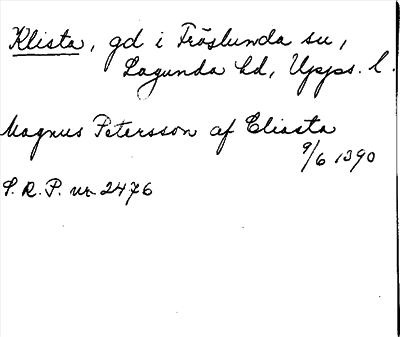 Klista, gd i Fröslunda sn,
Lagunda hd, Upps. l.
Magnus Petersson af Eliasta
9/6 1390
S. R. P. nr 2476